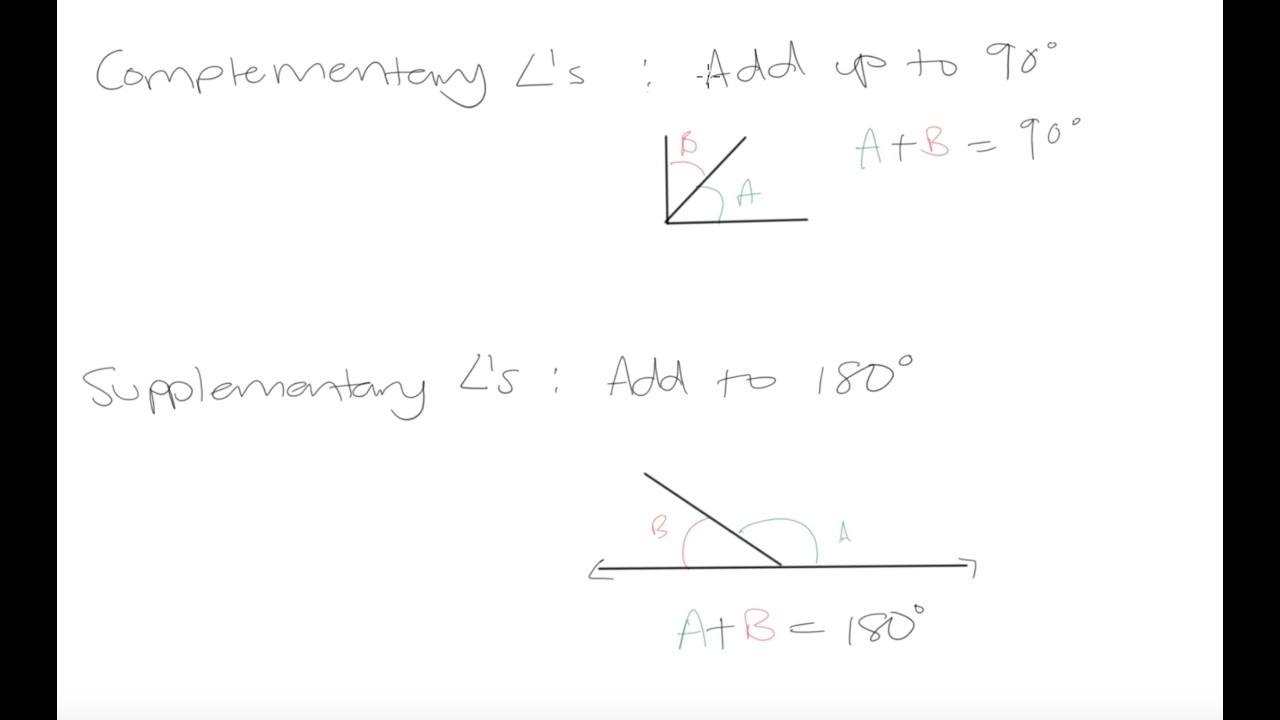 Complementary ∠'s : Add up to 90°
A+B = 90°
B
A
Supplementary ∠'s : Add to 180°
B
A
A+B = 180°